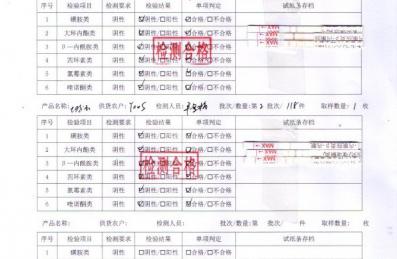 序号 检验项目 检测要求 检验结果 单项判定 试纸条存档
1 磺胺类 阴性 ☑阴性/☐阳性 ☑合格/☐不合格
2 大环内酯类 阴性 ☑阴性/☐阳性 ☑合格/☐不合格
3 β—内酰胺类 阴性 ☑阴性/☐阳性 ☑合格/☐不合格
4 四环素类 阴性 ☑阴性/☐阳性 ☑合格/☐不合格
5 氯霉素类 阴性 ☑阴性/☐阳性 ☑合格/☐不合格
6 喹诺酮类 阴性 ☑阴性/☐阳性 ☑合格/☐不合格
检测合格
产品名称: 供货农户: 检测人员: 批次/数量:第 2 批次, 118 件 取样数量: 1 枚
序号 检验项目 检测要求 检验结果 单项判定 试纸条存档
1 磺胺类 阴性 ☑阴性/☐阳性 ☑合格/☐不合格
2 大环内酯类 阴性 ☑阴性/☐阳性 ☑合格/☐不合格
3 β—内酰胺类 阴性 ☑阴性/☐阳性 ☑合格/☐不合格
4 四环素类 阴性 ☑阴性/☐阳性 ☑合格/☐不合格
5 氯霉素类 阴性 ☑阴性/☐阳性 ☑合格/☐不合格
6 喹诺酮类 阴性 ☑阴性/☐阳性 ☑合格/☐不合格
检测合格
MAX
MAX
产品名称: 供货农户: 检测人员: 批次/数量:第 批次, 件 取样数量: 枚
序号 检验项目 检测要求 检验结果 单项判定 试纸条存档
1 磺胺类 阴性 ☐阴性/☐阳性 ☐合格/☐不合格